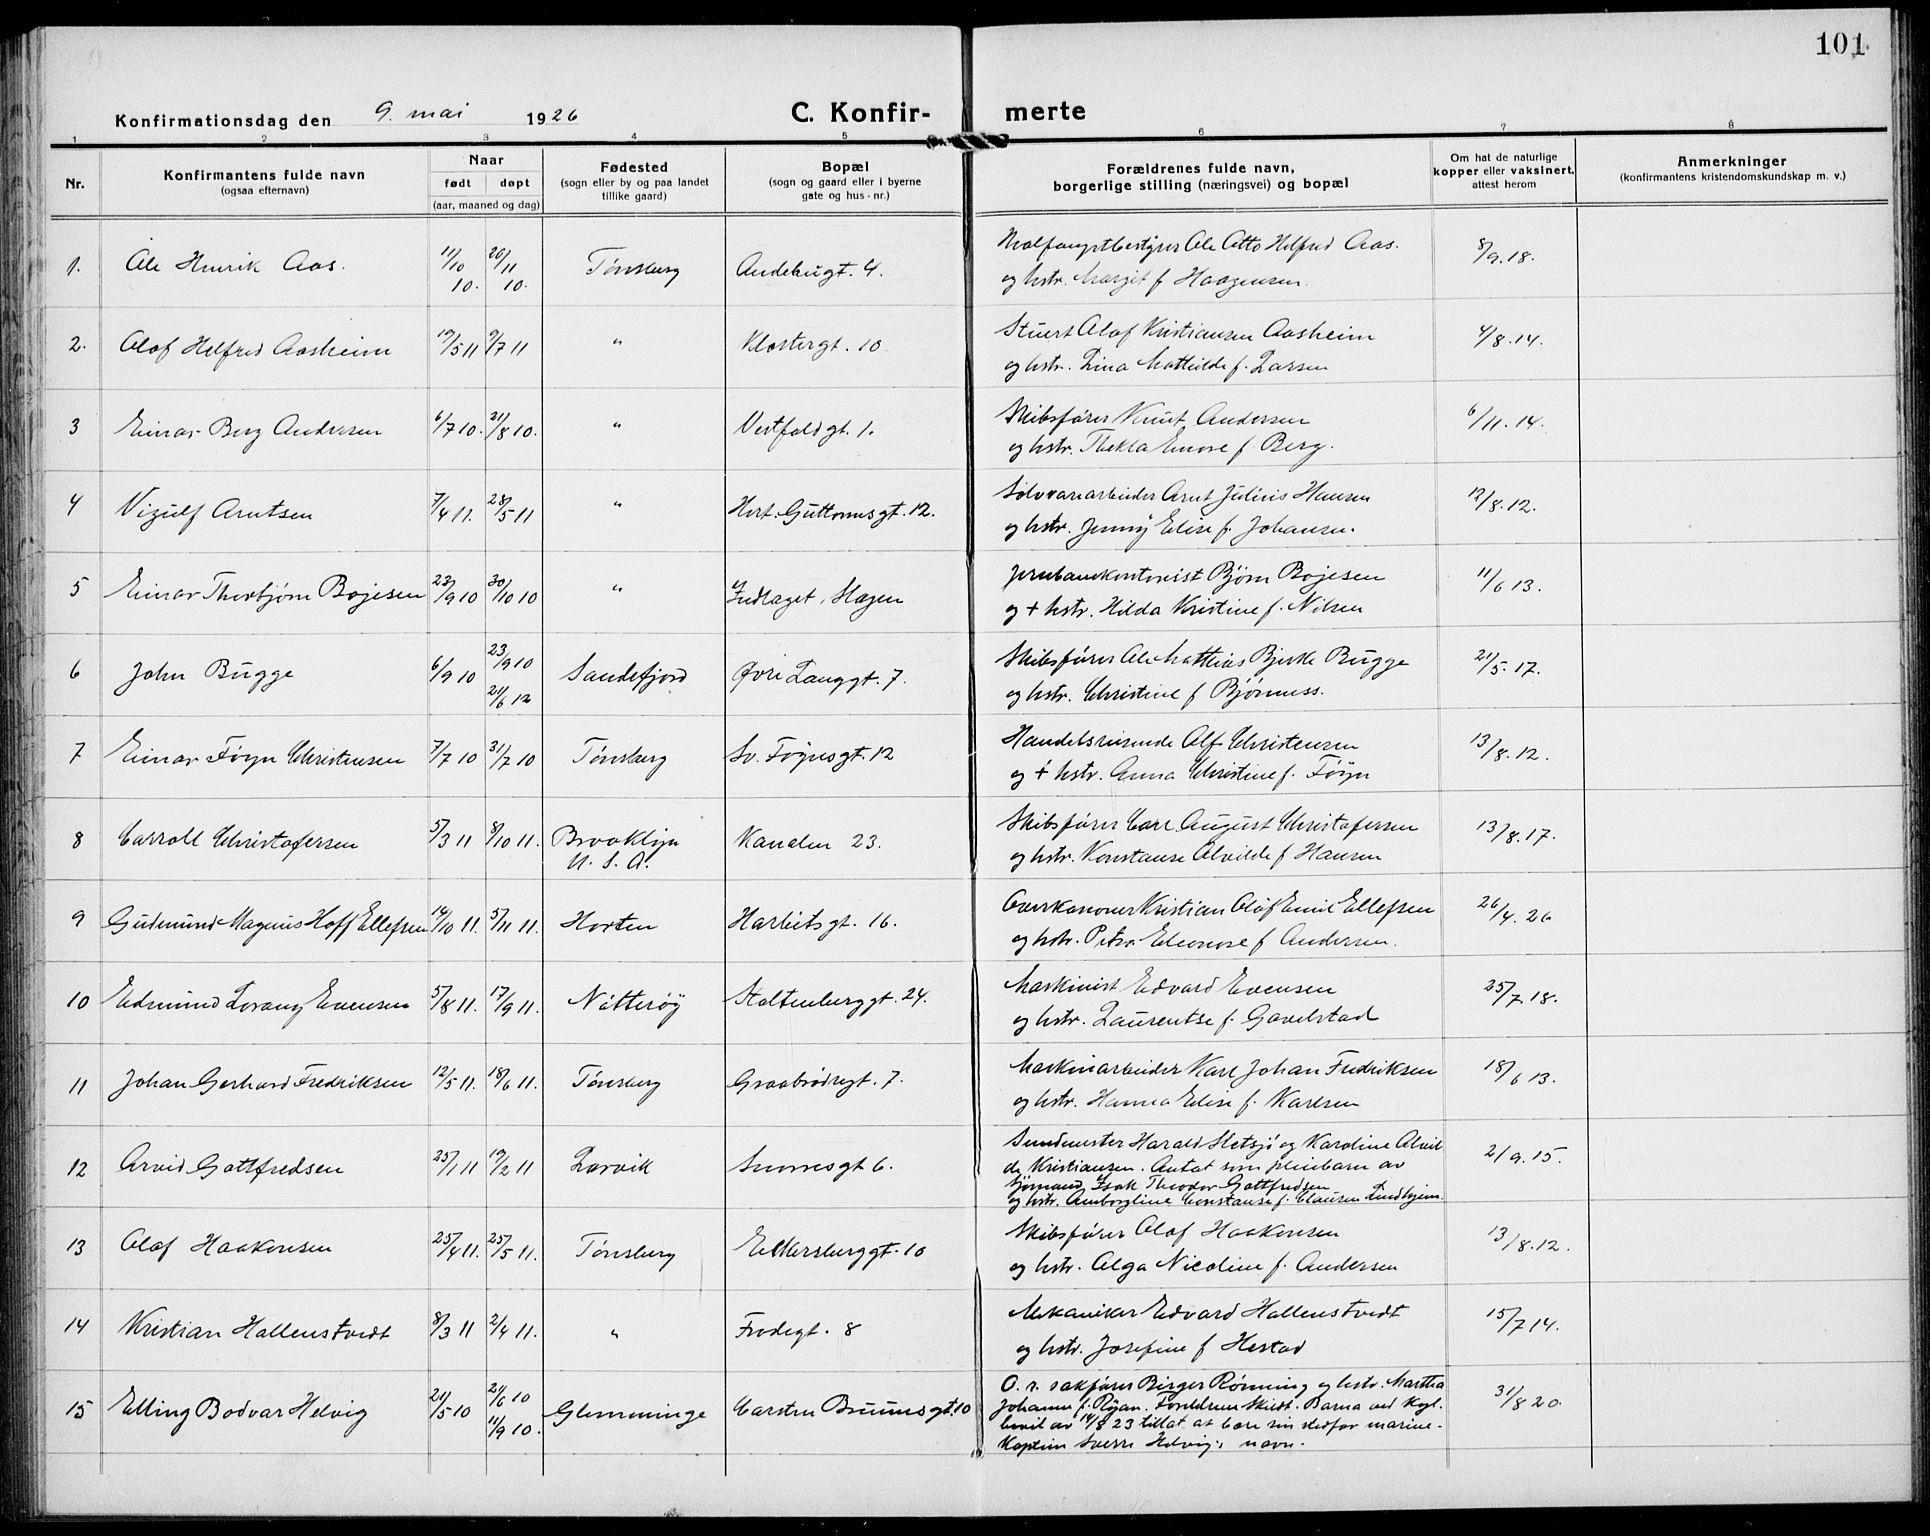 101
Konfirmationsdag den 9. mai 1926 C. Konfir- merte
1 2 3 4 5 6 7 8
Nr. Konfirmantens fulde navn (ogsaa efternavn) Naar født døpt (aar, maaned og dag) Fødested (sogn eller by og paa landet tillike gaard) Bopæl (sogn og gaard eller i byerne gate og hus-nr.) Forældrenes fulde navn, borgerlige stilling (næringsvei) og bopæl Om hat de naturlige kopper eller vaksinert, attest herom Anmerkninger (konfirmantens kristendomskundskap m. v.)
1. Ole Henrik Aas. 11/10 10. 20/11 10. Tønsberg Andebugt. 4. Hvalfangstbestyrer Ole Otto Helfred Aas. 8/9.18.
og hstr. Margit f. Haagensen.
2. Olaf Helfred Aasheim 19/5 11 9/7 11 " Klostergt. 10 Stuert Olaf Kristiansen Aasheim 4/8.14.
og hstr. Lina Mathilde f. Larsen
3 Einar Berg Andersen 6/7 10. 21/8 10. " Vestfoldgt. 1. Skibsfører Knut Andersen 6/11.14.
og hstr. Thekla Enore f. Berg.
4 Vigulf Arntsen 7/4 11. 28/5 11 " Hert. Guttormsgt. 12. Sølvvarearbeider Arnt Julius Hansen 12/8.12.
og hstr. Jenny Elise f. Johansen.
5 Einar Thorbjørn Bojesen 23/9 10 30/10 10 " Indlaget, Slagen Jernbanekontorist Bjørn Bojesen 11/6 13.
og + hstr. Hilda Kristine f. Nilsen
6 John Bugge 6/9 10 23/9 10 21/6 12 Sandefjord Øvre Langgt. 7. Skibsfører Ole Mathias Bjerke Bugge 21/5.17.
og hstr. Christine f. Bjørness.
7 Einar Føyn Christensen 7/7 10 31/7 10 Tønsberg Sv. Føynsgt. 12 Handelsreisende Alf Christensen 13/8.12.
og + hstr. Anna Christine f. Føyn
8 Carroll Christofersen 5/3 11 8/10 11. Brooklyn U. S. A. Kanalen 23. Skibsfører Carl August Christofersen 13/8.17.
og hstr. Konstanse Alvilde f. Hansen
9 Gudmund Magnus Hoff Ellefsen 14/10 11. 5/11 11. Horten Harbitsgt. 16. Overkanoner Kristian Olaf Emil Ellefsen 26/4.26
og hstr. Petra Eleonore f. Andersen.
10 Edmund Lorang Evensen 5/8 11. 17/9 11. Nøtterøy Stoltenberggt. 24. Maskinist Edvard Evensen 25/7.18.
og hstr. Laurentse f. Gavelstad
11 Johan Gerhard Fredriksen 12/5 11. 18/6 11. Tønsberg Graabrødregt. 7. Maskinarbeider Karl Johan Fredriksen 18/6 13.
og hstr. Hanna Elise f. Karlsen
12 Arvid Gottfredsen 25/1 11 19/2 11 Larvik Snorresgt 6. Smedmester Harald Sletsjø og Karoline Alvil 2/9.15.
de Kristiansen. Antat som pleiebarn av
sjømand Isak Theodor Gottfredsen
og hstr. Amborgline Constanse f. Clausen Lindhjem.
13 Olaf Haakonsen 25/4 11. 25/5 11. Tønsberg Eckersberggt. 10 Skibsfører Olaf Haakonsen 13/8.12.
og hstr. Olga Nicoline f. Andersen
14 Kristian Hallenstvedt 8/3 11 2/4 11. " Frodegt. 8 Mekaniker Edvard Hallenstvedt 15/7 14.
og hstr. Josefine f. Hestad
15 Elling Bodvar Helvig 21/5 10 21/6 10 11/9 10. Glemminge Carsten Bruunsgt. 10 O. r. sakfører Birger Rønning og hstr. Martha 31/8 20.
Johanne f. Ryan. Foreldrene skidt. Barna ved Kgl.
bevil av 14/8 23 tillat at bære sin stedfar marine-
kaptein Sverre Helvig's navn.